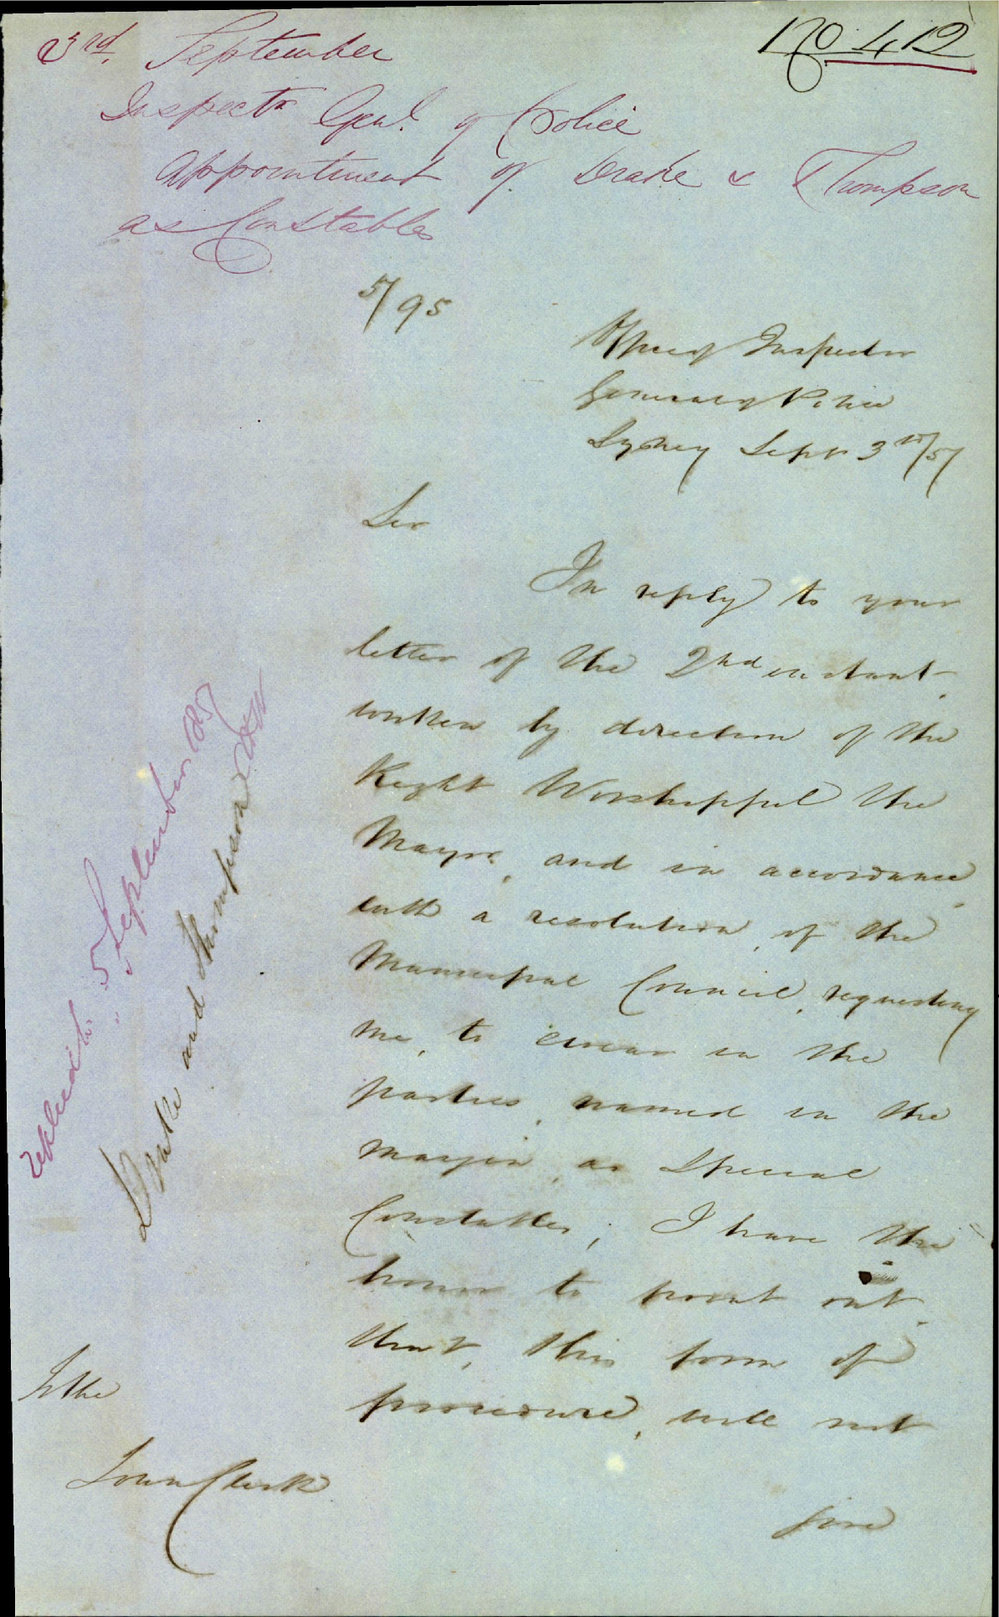 No 412
3rd. September
Inspectr Genl. of Police
Appointment of Drake & Thompson
as Constables
57/95
Office of Inspector
General of Police
Sydney Sept 3rd/57
Sir
In reply to your
letter of the 2nd instant,
written by direction of the
Right Worshipful the
Mayor, and in accordance,
with a resolution, of the
Municipal Council, requesting
me, to swear in the
parties, named in the
margin, as Special
Constables; I have the
honor to point out,
that, this form of
procedure, will not
Replied to 5 September 1857
Drake and Thompson
To the
Town Clerk